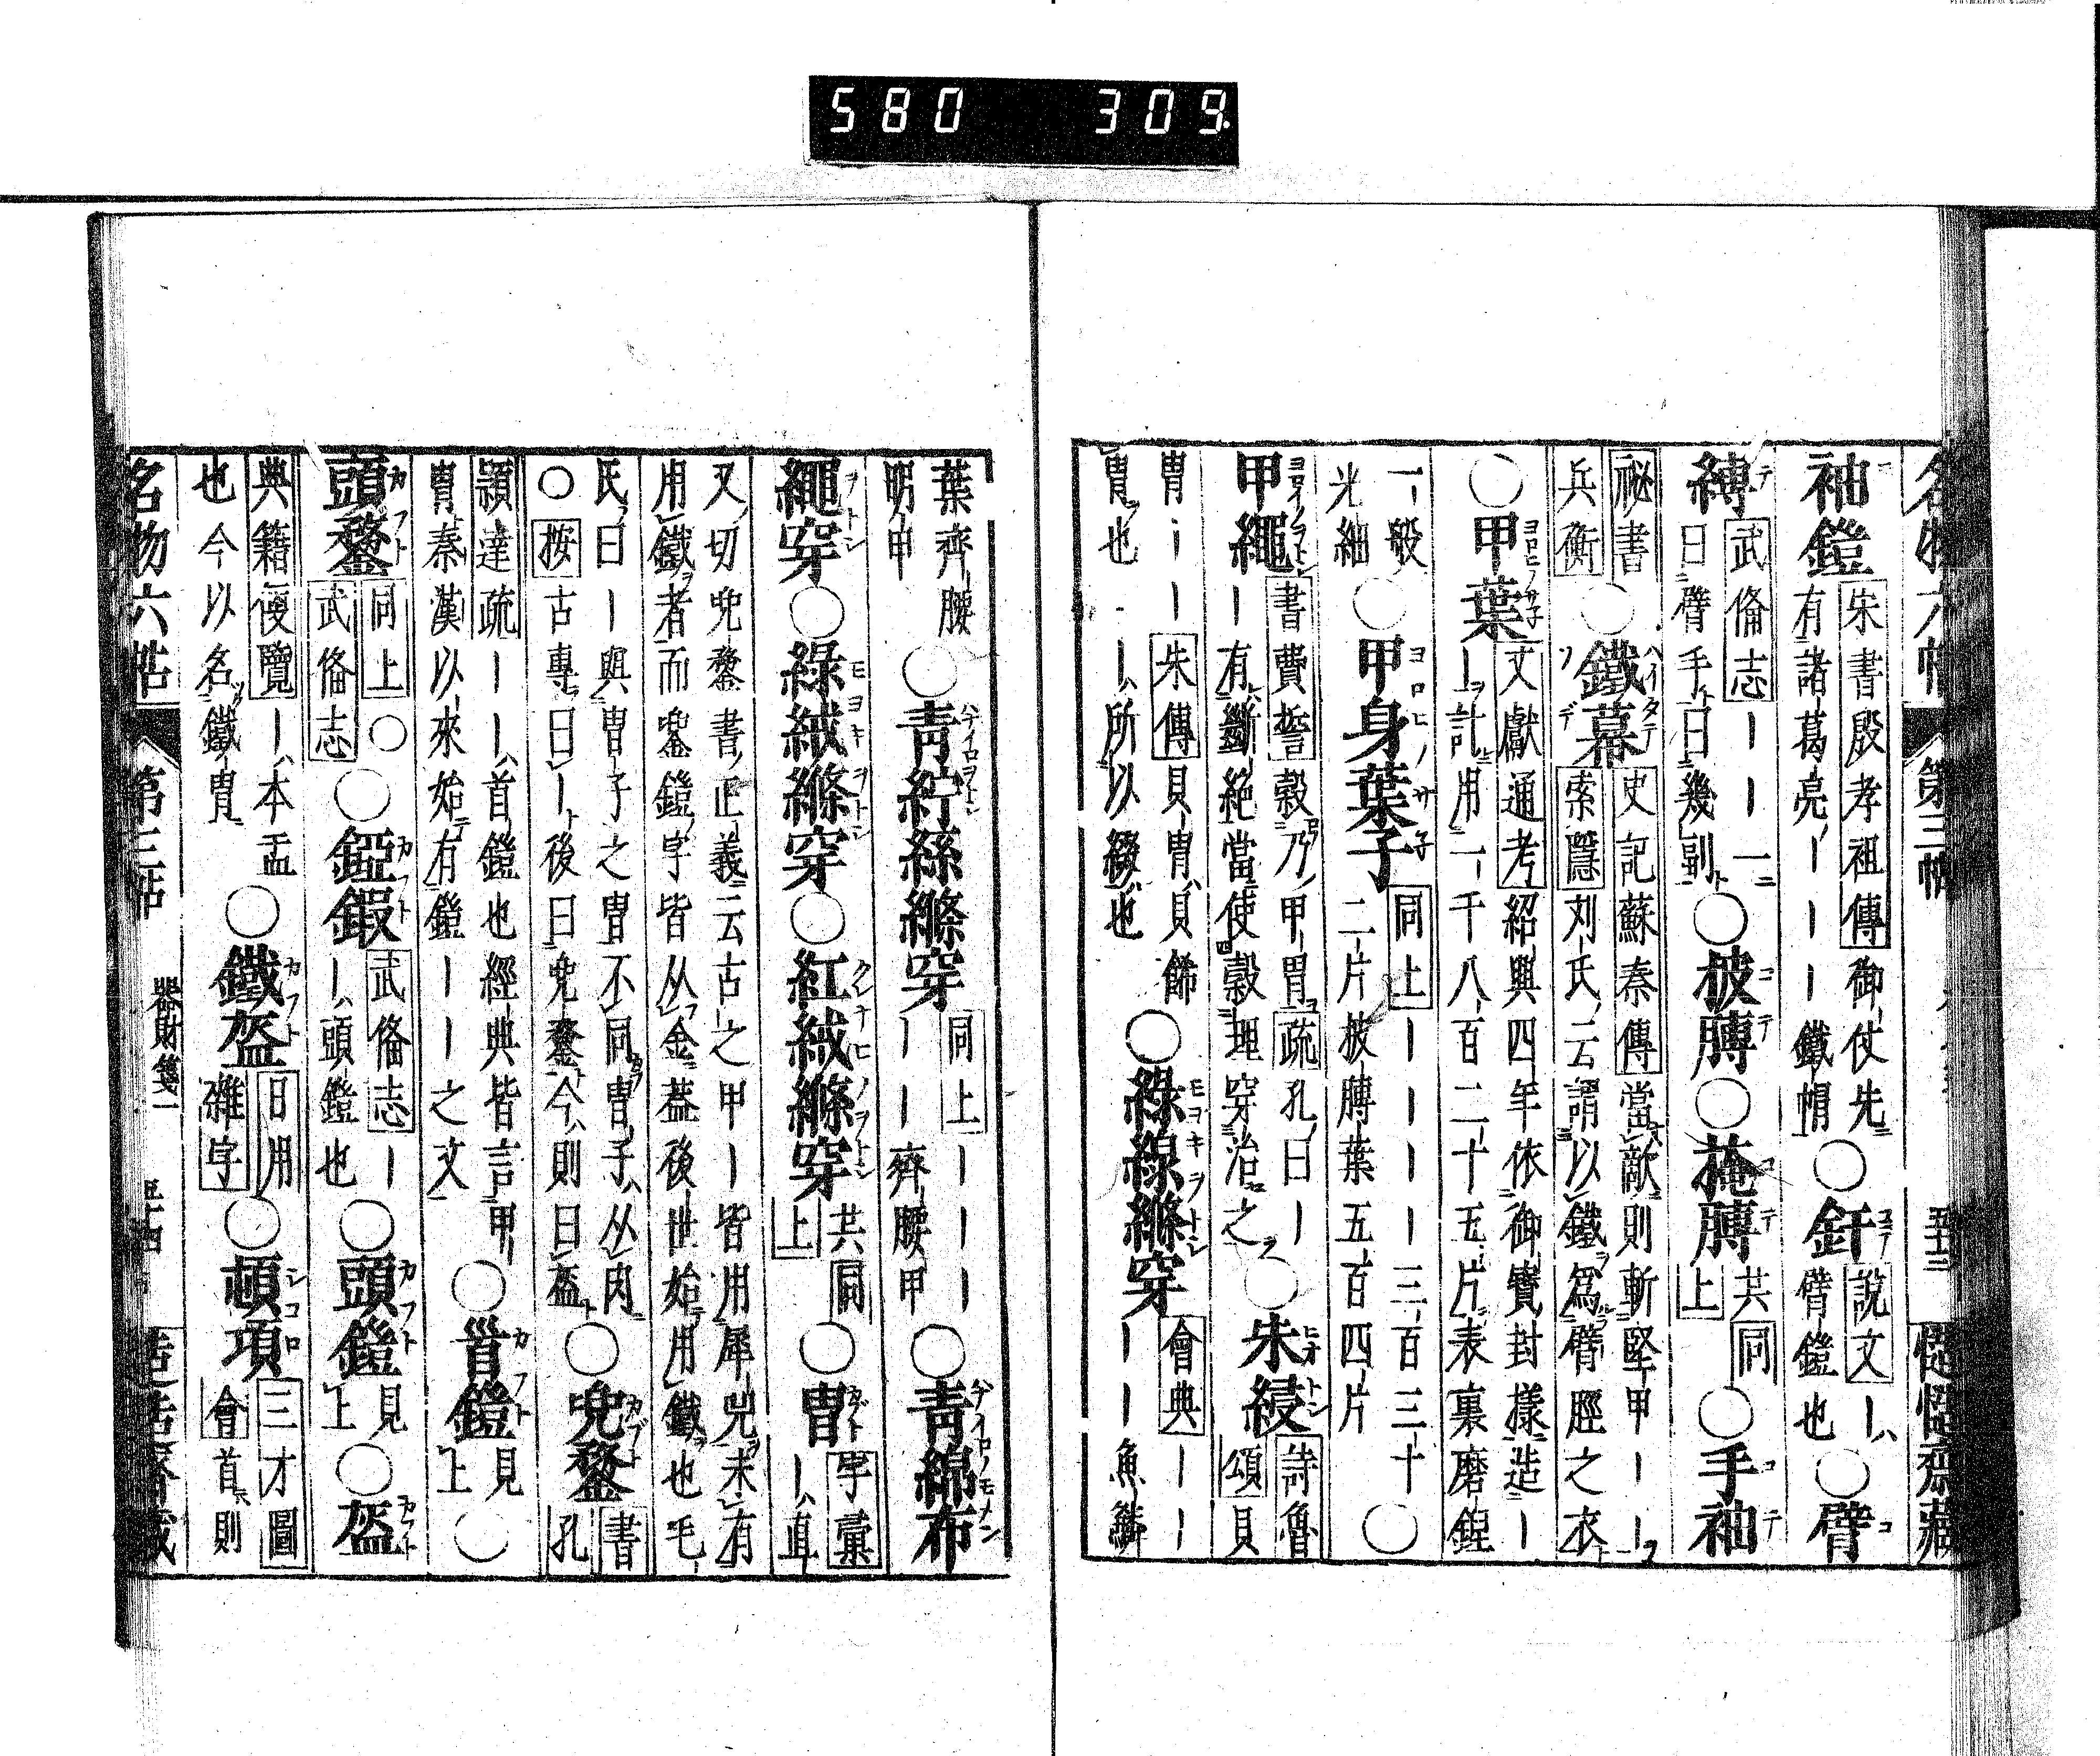 580 309
名物六帖 第三帖 五十三 慥慥齋藏
袖鎧 宋書殷孝祖傳 御仗先有諸葛亮｜｜鐵帽 ○釬 說文｜臂鎧也 ○臂
縳 武偹志｜｜一曰臂手曰幾副 ○披膊 ○掩膊 共同上 ○手袖
祕書兵衡 ○鐵幕 史記蘇秦傳 當敵則斬堅甲｜｜ 索隱 刘氏云謂以鐵爲臂脛之衣
○甲葉 文獻通考 紹興四年依御寳封樣造｜｜計用一千八百二十五片表裏磨鋥
一般光細 ○甲身葉子 同上｜｜｜｜三百三十二片披膊葉五百四片 ○
甲繩 書費誓 穀乃甲冑 疏 孔曰｜｜有斷絕當使穀理穿治之 ○朱綅 詩魯頌 貝
冑｜｜ 朱傳 貝冑貝餙冑也｜｜所以綴也 ○綠線縧穿 會典｜｜｜｜魚鱗
葉齊腰明甲 ○青紵絲縧穿 同上｜｜｜｜｜齊腰甲 ○青綿布
繩穿 ○綠絨縧穿 ○紅絨縧穿 共同上 ○冑 字彙｜直
又切兜鍪書正義云古之甲｜皆用犀兕未有用鐵者而鍪鎧字皆从金葢後世始用鐵也毛
氏曰｜與冑子之冑不同冑子从肉 ○按 古專曰｜後曰兜鍪今則曰盔 ○兜鍪 書孔
頴達疏｜｜首鎧也經典皆言甲冑秦漢以來始有鎧｜｜之文 ○首鎧 見上 ○
頭鍪 同上 ○ 武偹志 ○錏鍜 武偹志｜｜頭鎧也 ○頭鎧 見上 ○盔
典籍便覽｜本盂也今以名鐵冑 ○鐵盔 日用雜字 ○頓項 三才圖會 首則
名物六帖 第三帖 器財箋一 五十四 慥慥齋藏